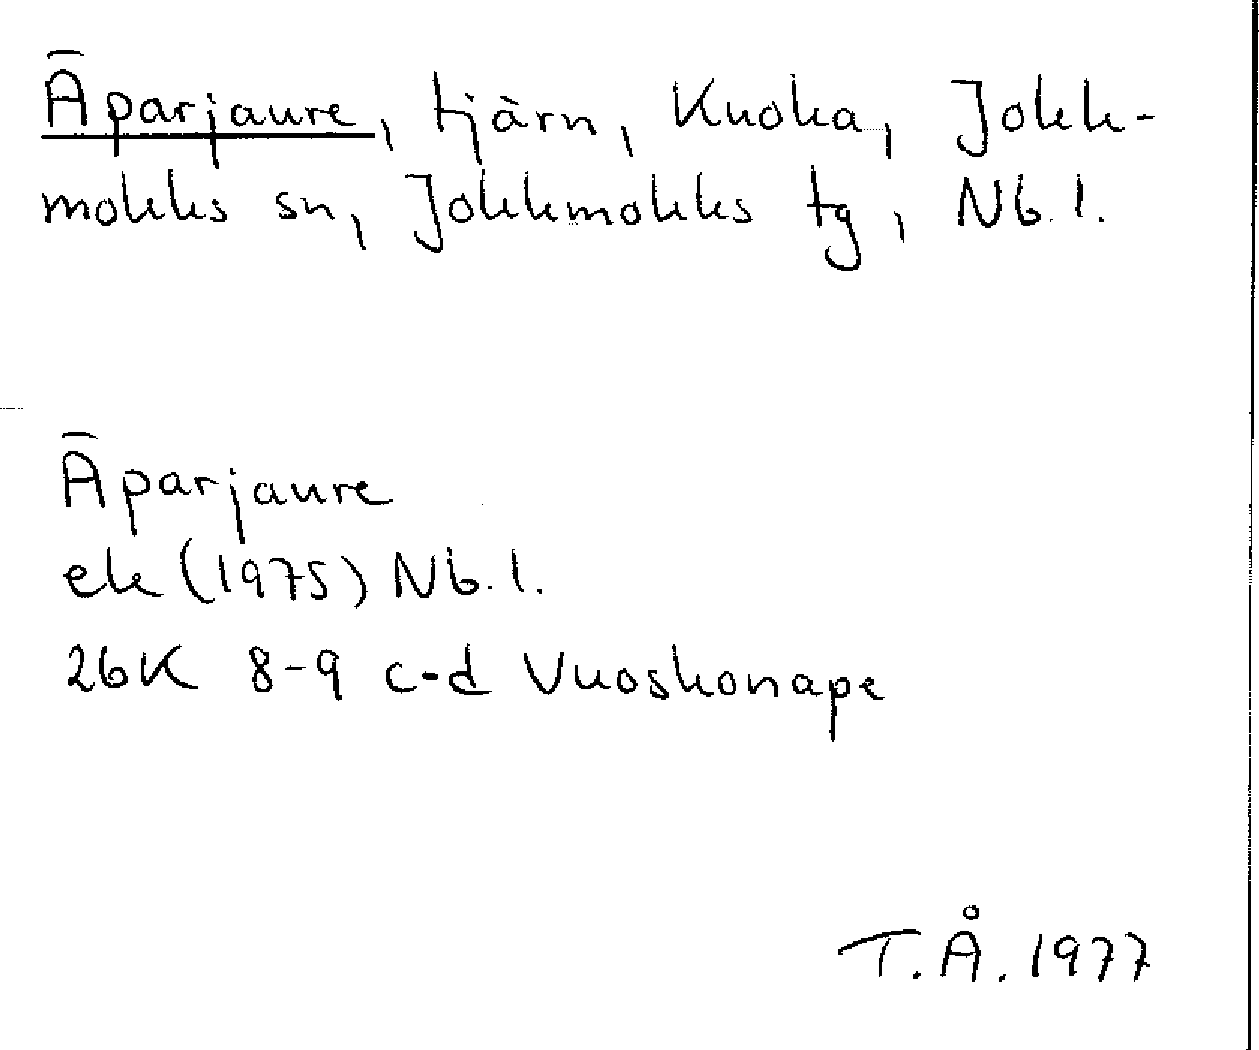 Āparjaure, tjärn, Kuoka, Jokk-
mokks sn, Jokkmokks tg, Nb. l.
Āparjaure
ek (1975) Nb. l.
26K 8-9 c-d Vuoskonape
T.Å. 1977